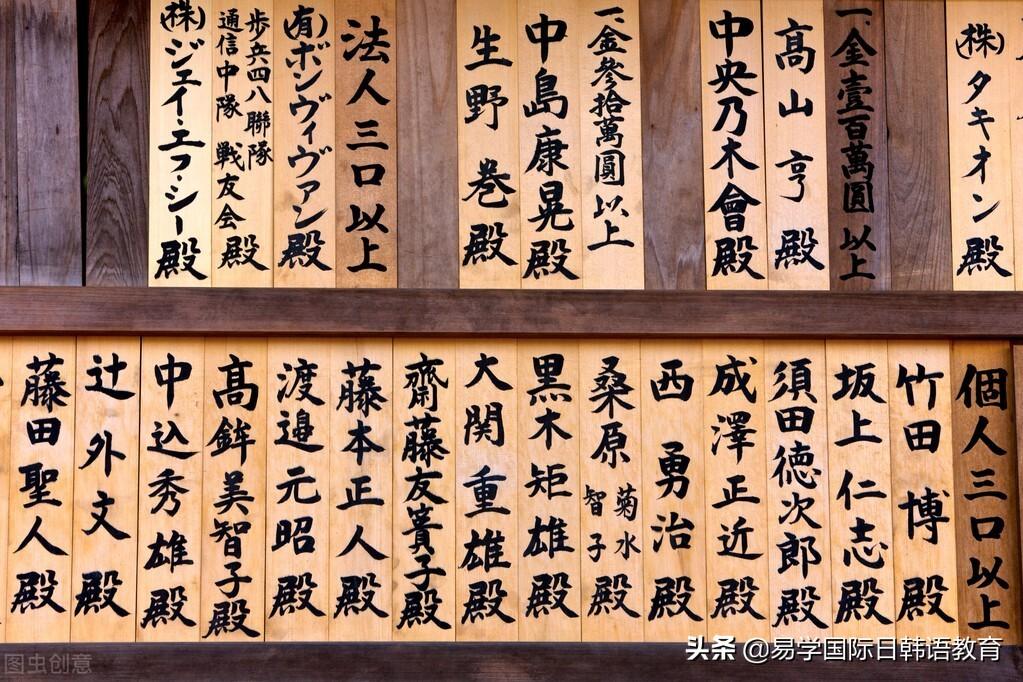 (株)タキオン殿
一、金壹百萬圓以上
髙山亨殿
中央乃木會殿
一、金参拾萬圓以上
中島康晃殿
生野巻殿
法人三口以上
(有)ボンヴィヴァン殿
歩兵四八聯隊
通信中隊 戦友会殿
(株)ジェイ・エフ・シー殿
個人三口以上
竹田博殿
坂上仁志殿
須田徳次郎殿
成澤正近殿
西勇治殿
桑原菊水
智子殿
黒木矩雄殿
大関重雄殿
齋藤友貴子殿
藤本正人殿
渡邉元昭殿
髙鉾美智子殿
中込秀雄殿
辻外文殿
藤田聖人殿
图虫创意
头条 @易学国际日韩语教育